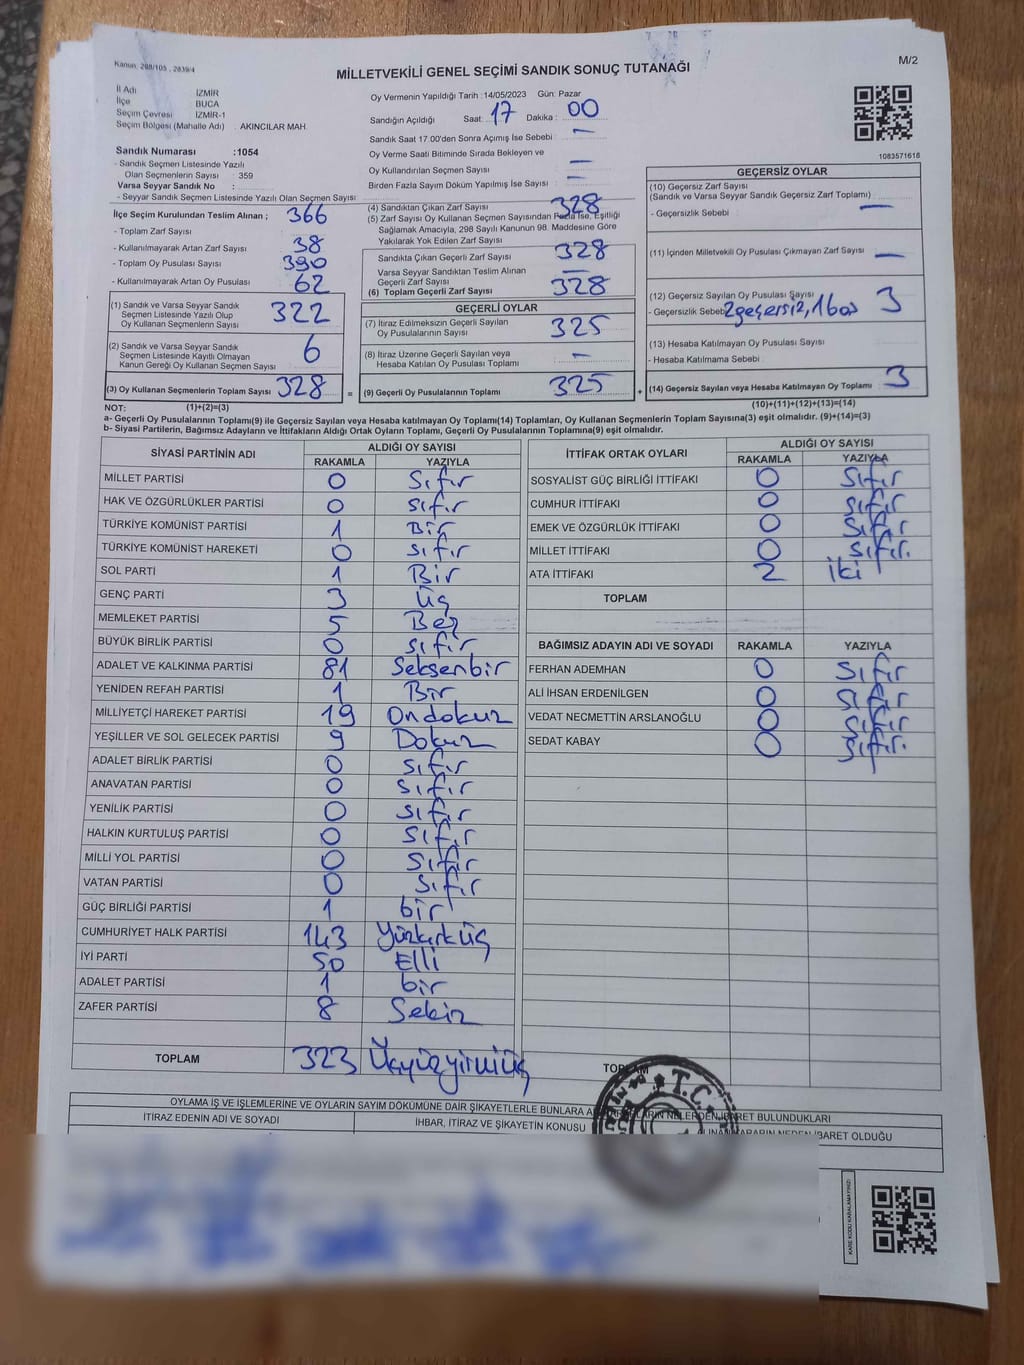 Kanun: 298/105 , 2839/4
MİLLETVEKİLİ GENEL SEÇİMİ SANDIK SONUÇ TUTANAĞI
M/2
İl Adı İZMİR
İlçe BUCA
Seçim Çevresi İZMİR-1
Seçim Bölgesi (Mahalle Adı) : AKINCILAR MAH.
Oy Vermenin Yapıldığı Tarih : 14/05/2023 Gün: Pazar
Sandığın Açıldığı Saat: 17 Dakika : 00
Sandık Saat 17.00'den Sonra Açımış İse Sebebi : —
Oy Verme Saati Bitiminde Sırada Bekleyen ve
Oy Kullandırılan Seçmen Sayısı : —
Birden Fazla Sayım Döküm Yapılmış İse Sayısı : —
1083571616
Sandık Numarası :1054
- Sandık Seçmen Listesinde Yazılı
Olan Seçmenlerin Sayısı : 359
Varsa Seyyar Sandık No :
- Seyyar Sandık Seçmen Listesinde Yazılı Olan Seçmen Sayısı :
İlçe Seçim Kurulundan Teslim Alınan ;
- Toplam Zarf Sayısı 366
- Kullanılmayarak Artan Zarf Sayısı 38
- Toplam Oy Pusulası Sayısı 390
- Kullanılmayarak Artan Oy Pusulası 62
(1) Sandık ve Varsa Seyyar Sandık
Seçmen Listesinde Yazılı Olup
Oy Kullanan Seçmenlerin Sayısı 322
(2) Sandık ve Varsa Seyyar Sandık
Seçmen Listesinde Kayıtlı Olmayan
Kanun Gereği Oy Kullanan Seçmen Sayısı 6
(3) Oy Kullanan Seçmenlerin Toplam Sayısı 328 =
(4) Sandıktan Çıkan Zarf Sayısı 328
(5) Zarf Sayısı Oy Kullanan Seçmen Sayısından Fazla İse, Eşitliği
Sağlamak Amacıyla, 298 Sayılı Kanunun 98. Maddesine Göre
Yakılarak Yok Edilen Zarf Sayısı
Sandıkta Çıkan Geçerli Zarf Sayısı 328
Varsa Seyyar Sandıktan Teslim Alınan
Geçerli Zarf Sayısı —
(6) Toplam Geçerli Zarf Sayısı 328
GEÇERLİ OYLAR
(7) İtiraz Edilmeksizin Geçerli Sayılan
Oy Pusulalarının Sayısı 325
(8) İtiraz Üzerine Geçerli Sayılan veya
Hesaba Katılan Oy Pusulası Toplamı —
(9) Geçerli Oy Pusulalarının Toplamı 325 +
GEÇERSİZ OYLAR
(10) Geçersiz Zarf Sayısı
(Sandık ve Varsa Seyyar Sandık Geçersiz Zarf Toplamı) : —
- Geçersizlik Sebebi :
(11) İçinden Milletvekili Oy Pusulası Çıkmayan Zarf Sayısı : —
(12) Geçersiz Sayılan Oy Pusulası Sayısı 3
- Geçersizlik Sebebi 2geçersiz, 1 boş
(13) Hesaba Katılmayan Oy Pusulası Sayısı :
- Hesaba Katılmama Sebebi :
(14) Geçersiz Sayılan veya Hesaba Katılmayan Oy Toplamı : 3
NOT: (1)+(2)=(3)
(10)+(11)+(12)+(13)=(14)
a- Geçerli Oy Pusulalarının Toplamı(9) ile Geçersiz Sayılan veya Hesaba katılmayan Oy Toplamı(14) Toplamları, Oy Kullanan Seçmenlerin Toplam Sayısına(3) eşit olmalıdır. (9)+(14)=(3)
b- Siyasi Partilerin, Bağımsız Adayların ve İttifakların Aldığı Ortak Oyların Toplamı, Geçerli Oy Pusulalarının Toplamına(9) eşit olmalıdır.
SİYASİ PARTİNİN ADI ALDIĞI OY SAYISI
RAKAMLA YAZIYLA
MİLLET PARTİSİ 0 Sıfır
HAK VE ÖZGÜRLÜKLER PARTİSİ 0 sıfır
TÜRKİYE KOMÜNİST PARTİSİ 1 Bir
TÜRKİYE KOMÜNİST HAREKETİ 0 sıfır
SOL PARTİ 1 Bir
GENÇ PARTİ 3 üç
MEMLEKET PARTİSİ 5 Beş
BÜYÜK BİRLİK PARTİSİ 0 sıfır
ADALET VE KALKINMA PARTİSİ 81 Seksenbir
YENİDEN REFAH PARTİSİ 1 Bir
MİLLİYETÇİ HAREKET PARTİSİ 19 Ondokuz
YEŞİLLER VE SOL GELECEK PARTİSİ 9 Dokuz
ADALET BİRLİK PARTİSİ 0 sıfır
ANAVATAN PARTİSİ 0 sıfır
YENİLİK PARTİSİ 0 sıfır
HALKIN KURTULUŞ PARTİSİ 0 sıfır
MİLLİ YOL PARTİSİ 0 sıfır
VATAN PARTİSİ 0 sıfır
GÜÇ BİRLİĞİ PARTİSİ 1 bir
CUMHURİYET HALK PARTİSİ 143 Yüzkırküç
İYİ PARTİ 50 Elli
ADALET PARTİSİ 1 bir
ZAFER PARTİSİ 8 Sekiz
TOPLAM 323 Üçyüzyirmiüç
İTTİFAK ORTAK OYLARI ALDIĞI OY SAYISI
RAKAMLA YAZIYLA
SOSYALİST GÜÇ BİRLİĞİ İTTİFAKI 0 Sıfır
CUMHUR İTTİFAKI 0 sıfır
EMEK VE ÖZGÜRLÜK İTTİFAKI 0 Sıfır
MİLLET İTTİFAKI 0 sıfır.
ATA İTTİFAKI 2 iki
TOPLAM
BAĞIMSIZ ADAYIN ADI VE SOYADI RAKAMLA YAZIYLA
FERHAN ADEMHAN 0 Sıfır
ALİ İHSAN ERDENİLGEN 0 sıfır
VEDAT NECMETTİN ARSLANOĞLU 0 sıfır
SEDAT KABAY 0 sıfır.
TOPLAM
T.C.
OYLAMA İŞ VE İŞLEMLERİNE VE OYLARIN SAYIM DÖKÜMÜNE DAİR ŞİKAYETLERLE BUNLARA NELERDEN İBARET BULUNDUKLARI
İTİRAZ EDENİN ADI VE SOYADI İHBAR, İTİRAZ VE ŞİKAYETİN KONUSU ALINAN KARARIN NEDEN İBARET OLDUĞU
KARE KODU KARALAMAYINIZ!